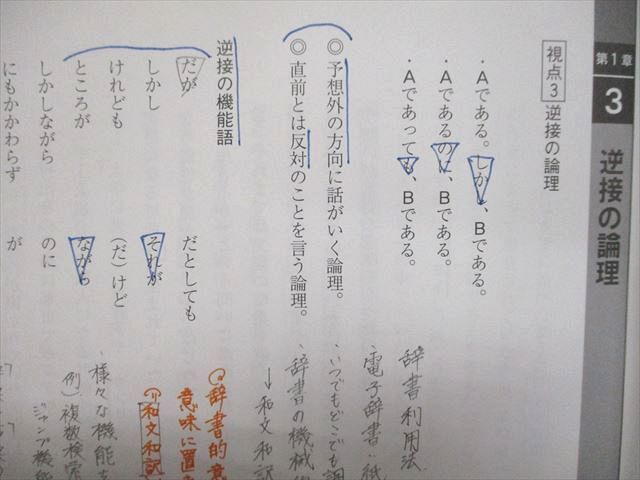 第1章
3
逆接の論理
視点3 逆接の論理
・Aである。しかし、Bである。
・Aであるのに、Bである。
・Aであっても、Bである。
◎予想外の方向に話がいく論理。
◎直前とは反対のことを言う論理。
逆接の機能語
だが
しかし
けれども
ところが
しかしながら
にもかかわらず
だとしても
それが
(だ)けど
ながら
のに
が
辞書利用法
電子辞書・紙
・いつでもどこでも調
・辞書の機械的
↓和文和訳
辞書的意
意味に置き
和文和訳
・様々な機能を
例)複数検索
ジャンプ機能